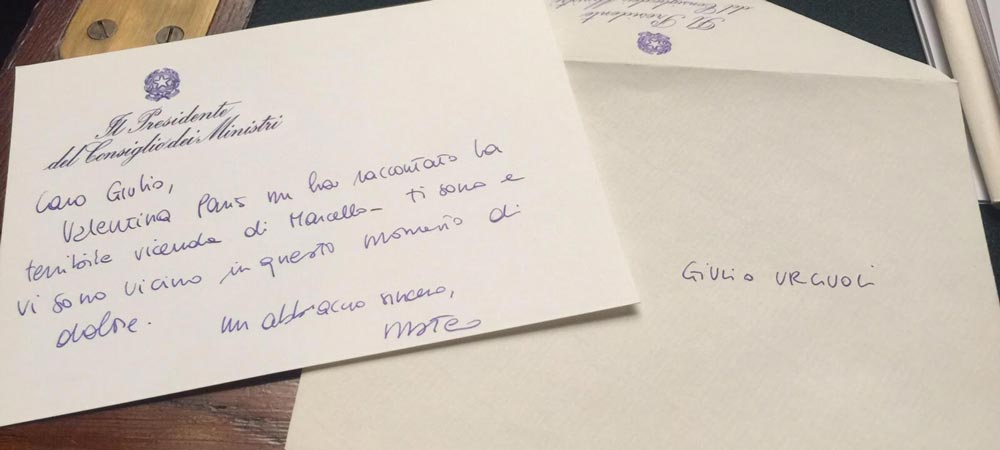 Il Presidente
del Consiglio dei Ministri
Caro Giulio,
Valentina Paris mi ha raccontato la
terribile vicenda di Marcello - ti sono e
vi sono vicino in questo momento di
dolore. Un abbraccio sincero,
Matteo
Il Presidente
del Consiglio dei Ministri
GIULIO URCIUOLI